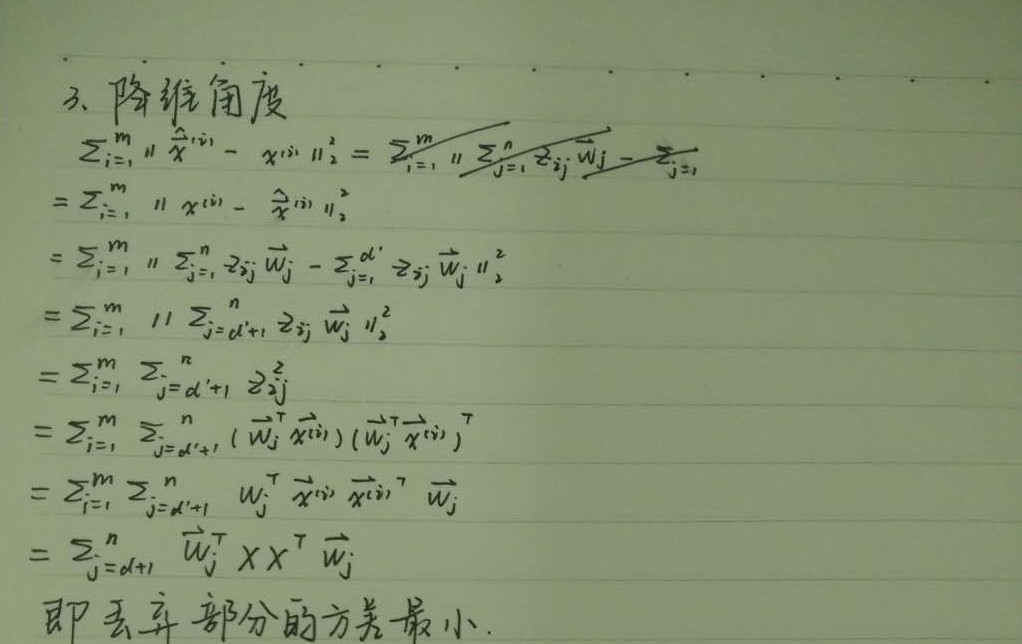 3、降维角度
∑ᵢ₌₁ᵐ ‖ x̂⁽ⁱ⁾ − x⁽ⁱ⁾ ‖₂² = ∑ᵢ₌₁ᵐ ‖ ∑ⱼ₌₁ⁿ zᵢⱼ w⃗ⱼ − ∑ⱼ₌₁
= ∑ᵢ₌₁ᵐ ‖ x⁽ⁱ⁾ − x̂⁽ⁱ⁾ ‖₂²
= ∑ᵢ₌₁ᵐ ‖ ∑ⱼ₌₁ⁿ zᵢⱼ w⃗ⱼ − ∑ⱼ₌₁^d' zᵢⱼ w⃗ⱼ ‖₂²
= ∑ᵢ₌₁ᵐ ‖ ∑_{j=d'+1}ⁿ zᵢⱼ w⃗ⱼ ‖₂²
= ∑ᵢ₌₁ᵐ ∑_{j=d'+1}ⁿ zᵢⱼ²
= ∑ᵢ₌₁ᵐ ∑_{j=d'+1}ⁿ (w⃗ⱼᵀ x⃗⁽ⁱ⁾)(w⃗ⱼᵀ x⃗⁽ⁱ⁾)ᵀ
= ∑ᵢ₌₁ᵐ ∑_{j=d'+1}ⁿ wⱼᵀ x⃗⁽ⁱ⁾ x⃗⁽ⁱ⁾ᵀ w⃗ⱼ
= ∑_{j=d+1}ⁿ w⃗ⱼᵀ XXᵀ w⃗ⱼ
即丢弃部分的方差最小.